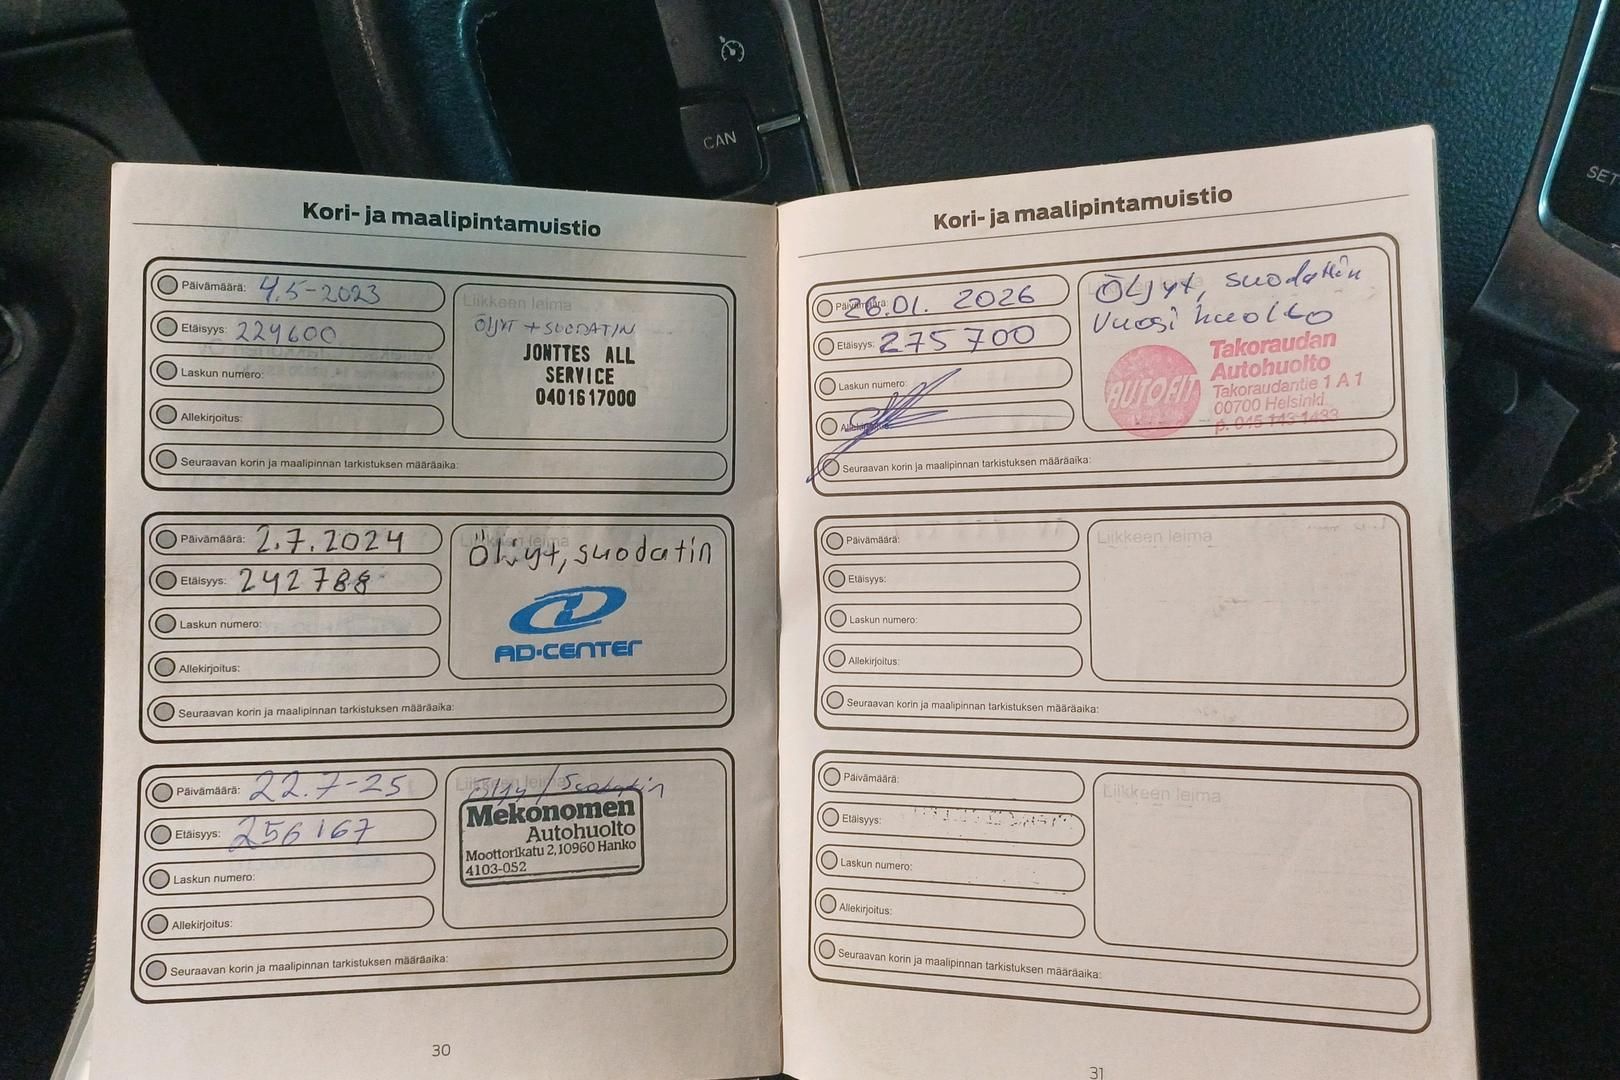 CAN
SET
Kori- ja maalipintamuistio
Päivämäärä: 4.5-2023
Etäisyys: 224600
Laskun numero:
Allekirjoitus:
Seuraavan korin ja maalipinnan tarkistuksen määräaika:
Liikkeen leima
ÖLJYT + SUODATIN
JONTTES ALL
SERVICE
0401617000
Päivämäärä: 2.7.2024
Etäisyys: 242788
Laskun numero:
Allekirjoitus:
Seuraavan korin ja maalipinnan tarkistuksen määräaika:
Liikkeen leima
Öljyt, suodatin
AD-CENTER
Päivämäärä: 22.7-25
Etäisyys: 256167
Laskun numero:
Allekirjoitus:
Seuraavan korin ja maalipinnan tarkistuksen määräaika:
Liikkeen leima
Öljy / Suodatin
Mekonomen
Autohuolto
Moottorikatu 2, 10960 Hanko
4103-052
30
Kori- ja maalipintamuistio
Päivämäärä: 26.01. 2026
Etäisyys: 275 700
Laskun numero:
Allekirjoitus:
Seuraavan korin ja maalipinnan tarkistuksen määräaika:
Öljyt, suodattin
Vuosi huolto
AUTOFIT
Takoraudan
Autohuolto
Takoraudantie 1 A 1
00700 Helsinki
p. 045 143 1433
Päivämäärä:
Etäisyys:
Laskun numero:
Allekirjoitus:
Seuraavan korin ja maalipinnan tarkistuksen määräaika:
Liikkeen leima
Päivämäärä:
Etäisyys:
Laskun numero:
Allekirjoitus:
Seuraavan korin ja maalipinnan tarkistuksen määräaika:
Liikkeen leima
31